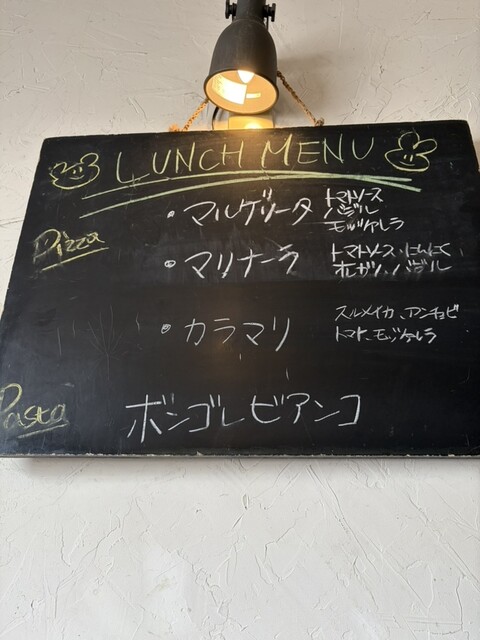 LUNCH MENU
Pizza
・マルゲリータ
トマトソース
バジル
モッツァレラ
・マリナーラ
トマトソース・にんにく
オレガノ、バジル
・カラマリ
スルメイカ、アンチョビ
トマト、モッツァレラ
Pasta
ボンゴレビアンコ